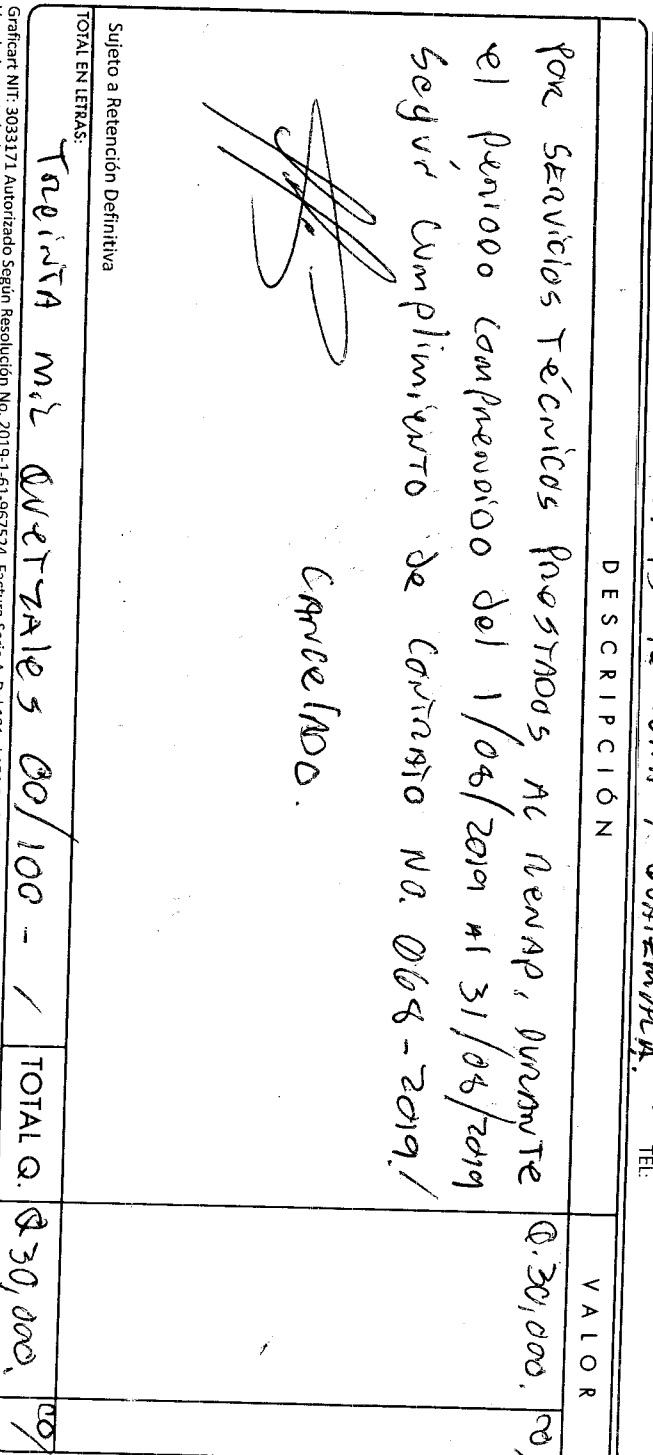 GUATEMALA.
TEL:
DESCRIPCIÓN
VALOR
Por Servicios Técnicos Prestados Al Renap, Durante
Q.30,000. 00/
el Periodo Comprendido del 1/08/2019 Al 31/08/2019
Según Cumplimiento de Contrato No. 068-2019./
Cancelado.
Sujeto a Retención Definitiva
TOTAL EN LETRAS:
Treinta mil Quetzales 00/100 - /
TOTAL Q.
Q30,000. 00/
Graficart NIT: 3033171 Autorizado Según Resolución No. 2019-1-61-967524 Factura Serie A